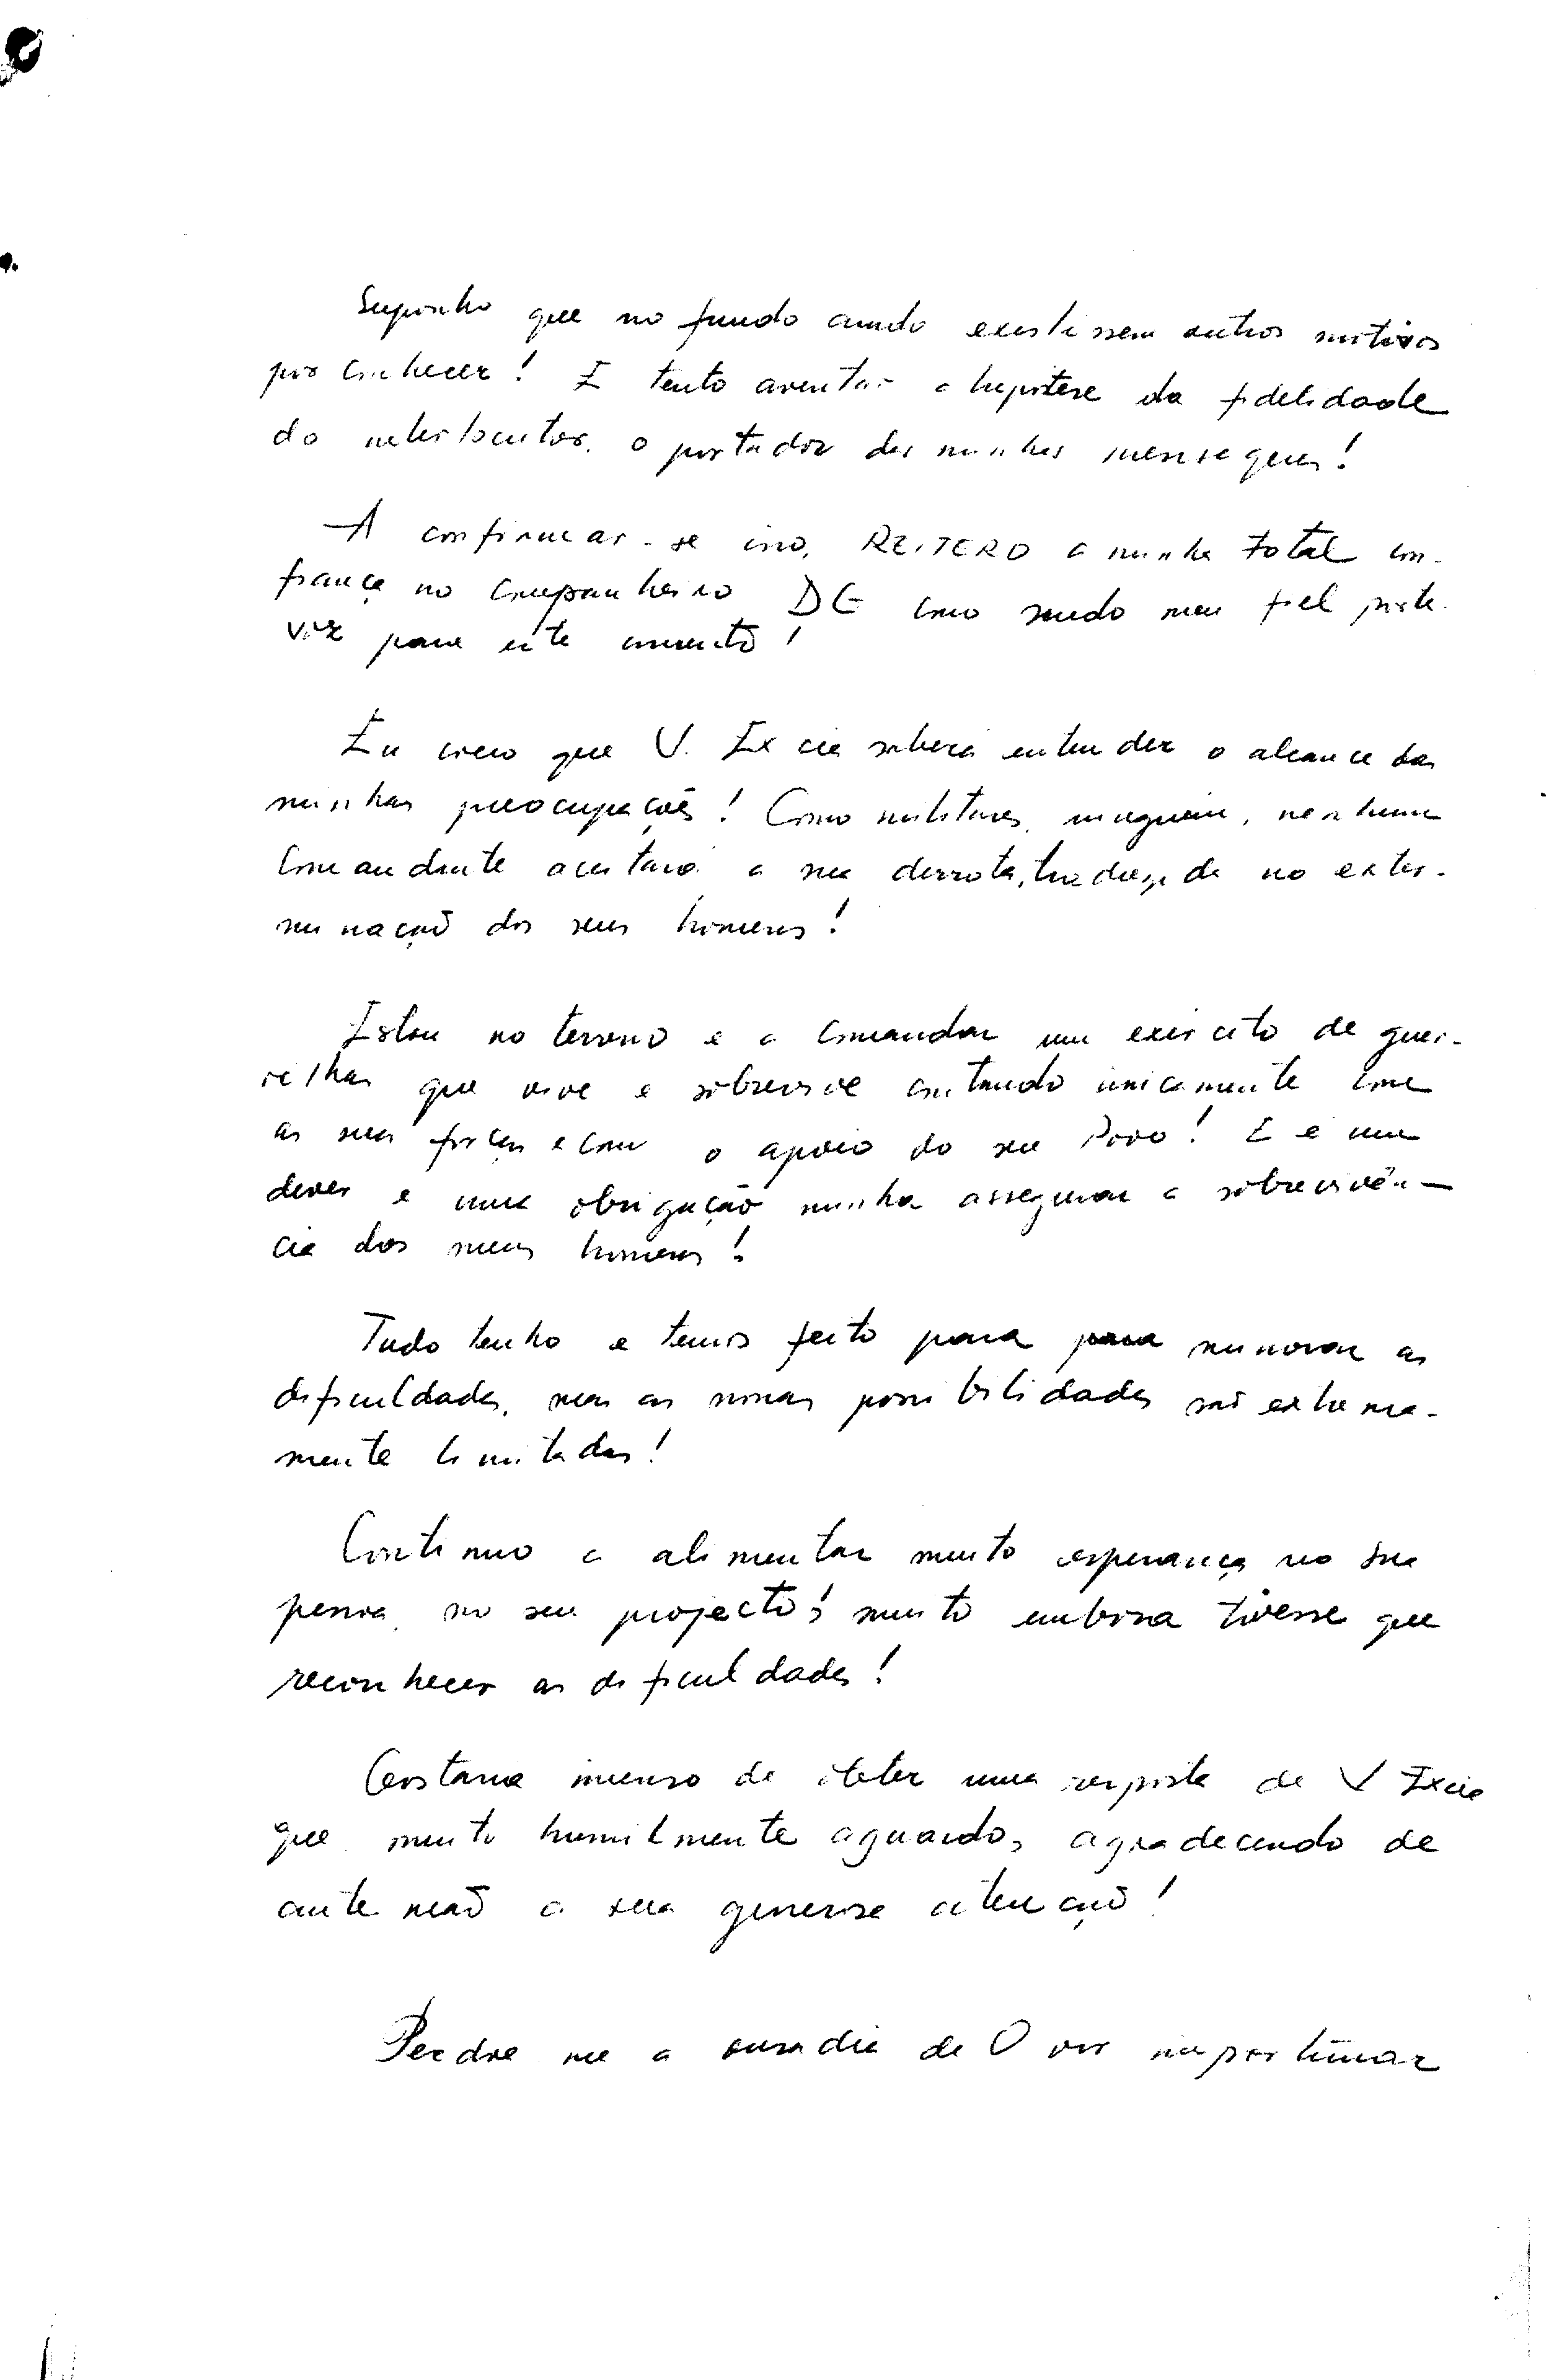 Suponho que no fundo ainda existissem outros motivos
por conhecer! E tento aventar a hipótese da fidelidade
do interlocutor, o portador das minhas mensagens!
A confirmar-se isso, REITERO a minha total con-
fiança no companheiro DG como sendo meu fiel porta-
voz para este assunto!
Eu creio que V. Excia saberá entender o alcance das
minhas preocupações! Como militares, ninguém, nenhum
Comandante aceitará a sua derrota, traduzida no exter-
minação dos seus homens!
Estou no terreno e a comandar um exército de guer-
rilhas que vive e sobrevive contando unicamente com
as suas forças e com o apoio do seu Povo! E é um
dever e uma obrigação minha assegurar a sobrevivên-
cia dos meus homens!
Tudo tenho e temos feito para para minorar as
dificuldades, mas as nossas possibilidades são extrema-
mente limitadas!
Continuo a alimentar muito esperança na sua
pessoa, no seu projecto! muito embora tivesse que
reconhecer as dificuldades!
Gostaria imenso de obter uma resposta de V Excia
que muito humilmente aguardo, agradecendo de
ante mão a sua generosa atenção!
Perdoe me a ousadia de O vir importunar